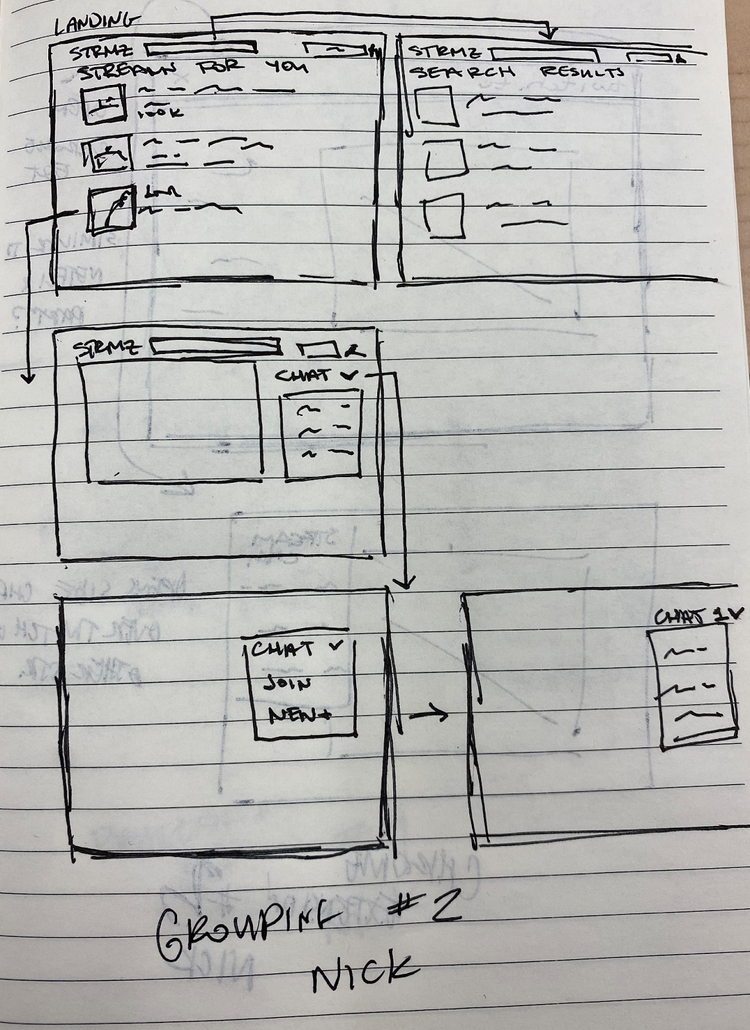 LANDING
STRMZ
STREAMS FOR YOU
100K
STRMZ
SEARCH RESULTS
STRMZ
CHAT
CHAT
JOIN
NEW+
CHAT 1
GROUPING #2
NICK